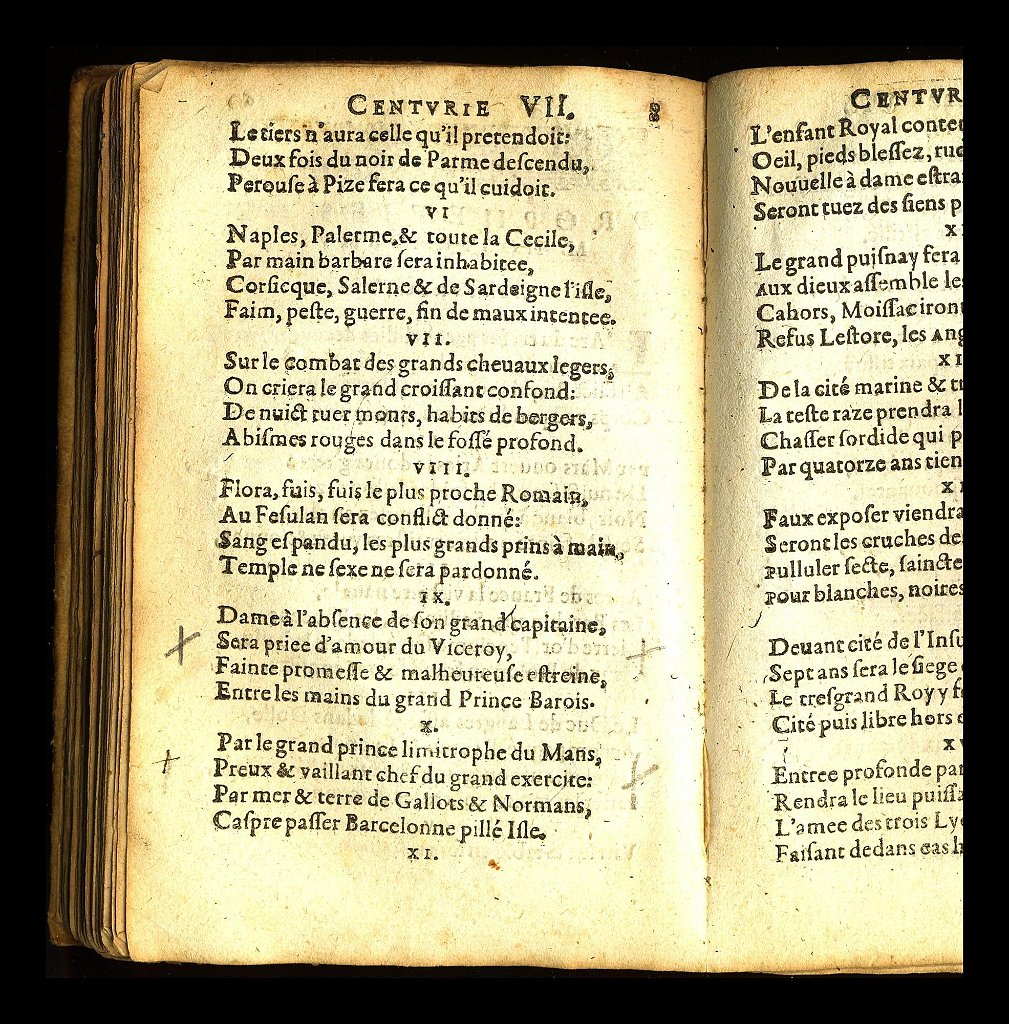 CENTVRIE VII.
Le tiers n'aura celle qu'il pretendoit:
Deux fois du noir de Parme deſcendu,
Perouſe à Pize fera ce qu'il cuidoit.
VI
Naples, Palerme, & toute la Cecile,
Par main barbare ſera inhabitee,
Corſicque, Salerne & de Sardeigne l'iſle,
Faim, peſte, guerre, fin de maux intentee.
VII.
Sur le combat des grands cheuaux legers,
On criera le grand croiſſant confond:
De nuict tuer monts, habits de bergers,
Abiſmes rouges dans le foſſé profond.
VIII.
Flora, fuis, fuis le plus proche Romain,
Au Feſulan ſera conflict donné:
Sang eſpandu, les plus grands prins à main,
Temple ne ſexe ne ſera pardonné.
IX.
Dame à l'abſence de ſon grand capitaine,
Sera priee d'amour du Viceroy,
Fainte promeſſe & malheureuſe eſtreine,
Entre les mains du grand Prince Barois.
X.
Par le grand prince limitrophe du Mans,
Preux & vaillant chef du grand exercite:
Par mer & terre de Gallots & Normans,
Caſpre paſſer Barcelonne pillé Iſle.
XI.
CENTVR
L'enfant Royal conte
Oeil, pieds bleſſez, ru
Nouuelle à dame eſtra
Seront tuez des ſiens p
X
Le grand puiſnay fera
Aux dieux aſſemble le
Cahors, Moiſſac iron
Refus Leſtore, les Ang
XI
De la cité marine & t
La teſte raze prendra l
Chaſſer ſordide qui p
Par quatorze ans tien
XI
Faux expoſer viendra
Seront les cruches de
Pulluler ſecte, ſaincte
Pour blanches, noires
Deuant cité de l'Inſu
Sept ans ſera le ſiege
Le treſgrand Roy y f
Cité puis libre hors
XV
Entree profonde par
Rendra le lieu puiſſa
L'amee des trois Ly
Faiſant dedans cas h